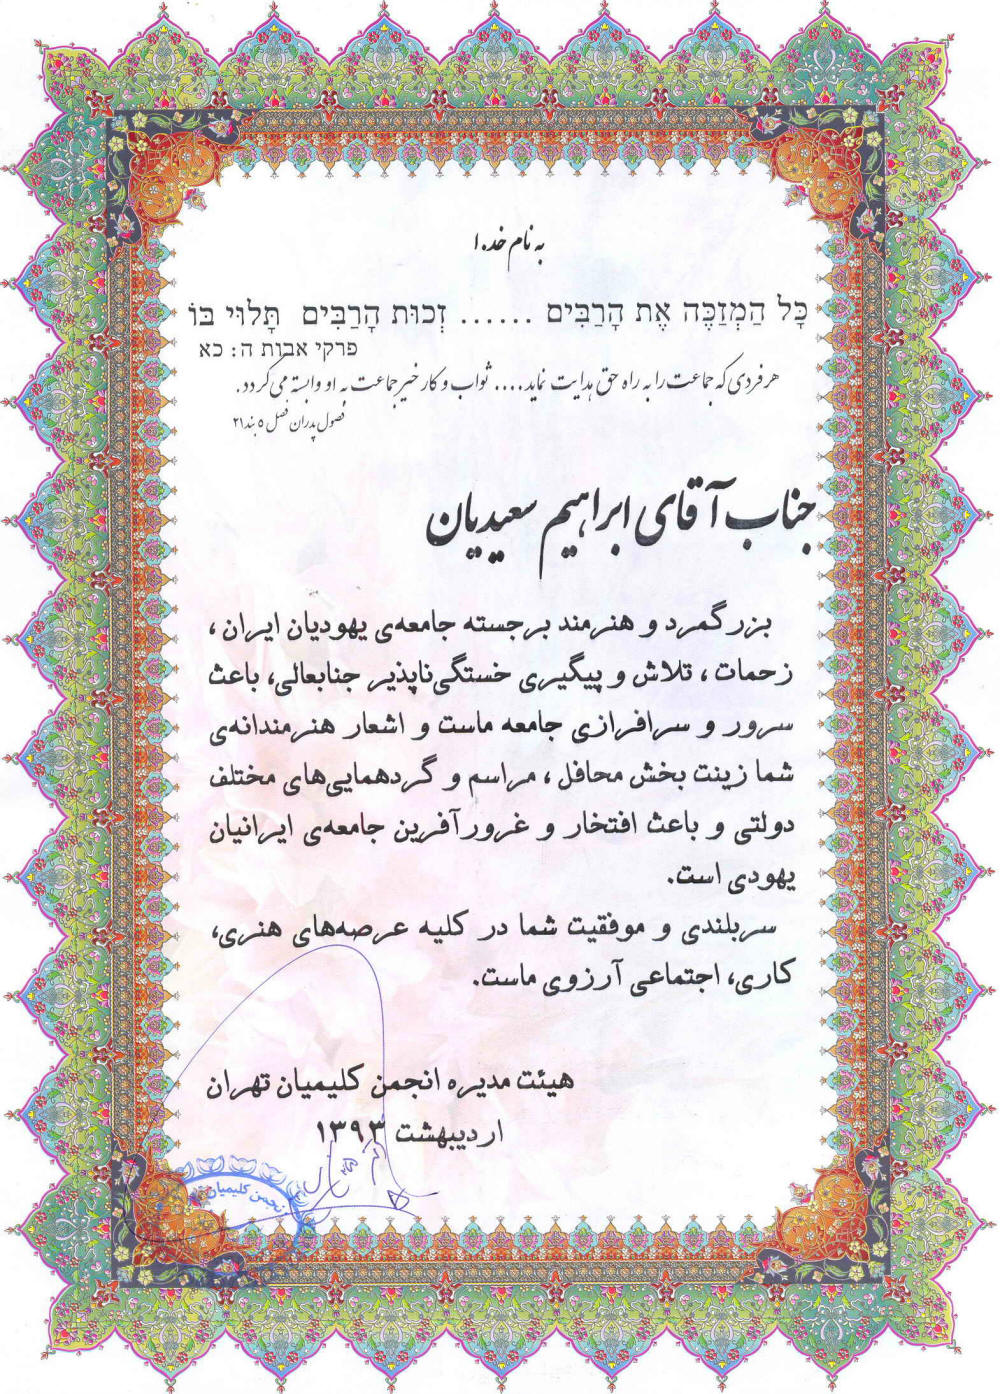 به نام خدا
כָּל הַמְזַכֶּה אֶת הָרַבִּים ...... זְכוּת הָרַבִּים תָּלוּי בּוֹ
פרקי אבות ה: כא
هر فردی که جماعت را به راه حق هدایت نماید.... ثواب و کار خیر جماعت به او وابسته می گردد.
فصول پدران فصل ۵ بند ۲۱
جناب آقای ابراهیم سعیدیان
بزرگمرد و هنرمند برجسته جامعه‌ی یهودیان ایران ،
زحمات ، تلاش و پیگیری خستگی‌ناپذیر جنابعالی، باعث
سرور و سرافرازی جامعه ماست و اشعار هنرمندانه‌ی
شما زینت بخش محافل ، مراسم و گردهمایی‌های مختلف
دولتی و باعث افتخار و غرورآفرین جامعه‌ی ایرانیان
یهودی است.
سربلندی و موفقیت شما در کلیه عرصه‌های هنری،
کاری، اجتماعی آرزوی ماست.
هیئت مدیره انجمن کلیمیان تهران
اردیبهشت ۱۳۹۳
انجمن کلیمیان